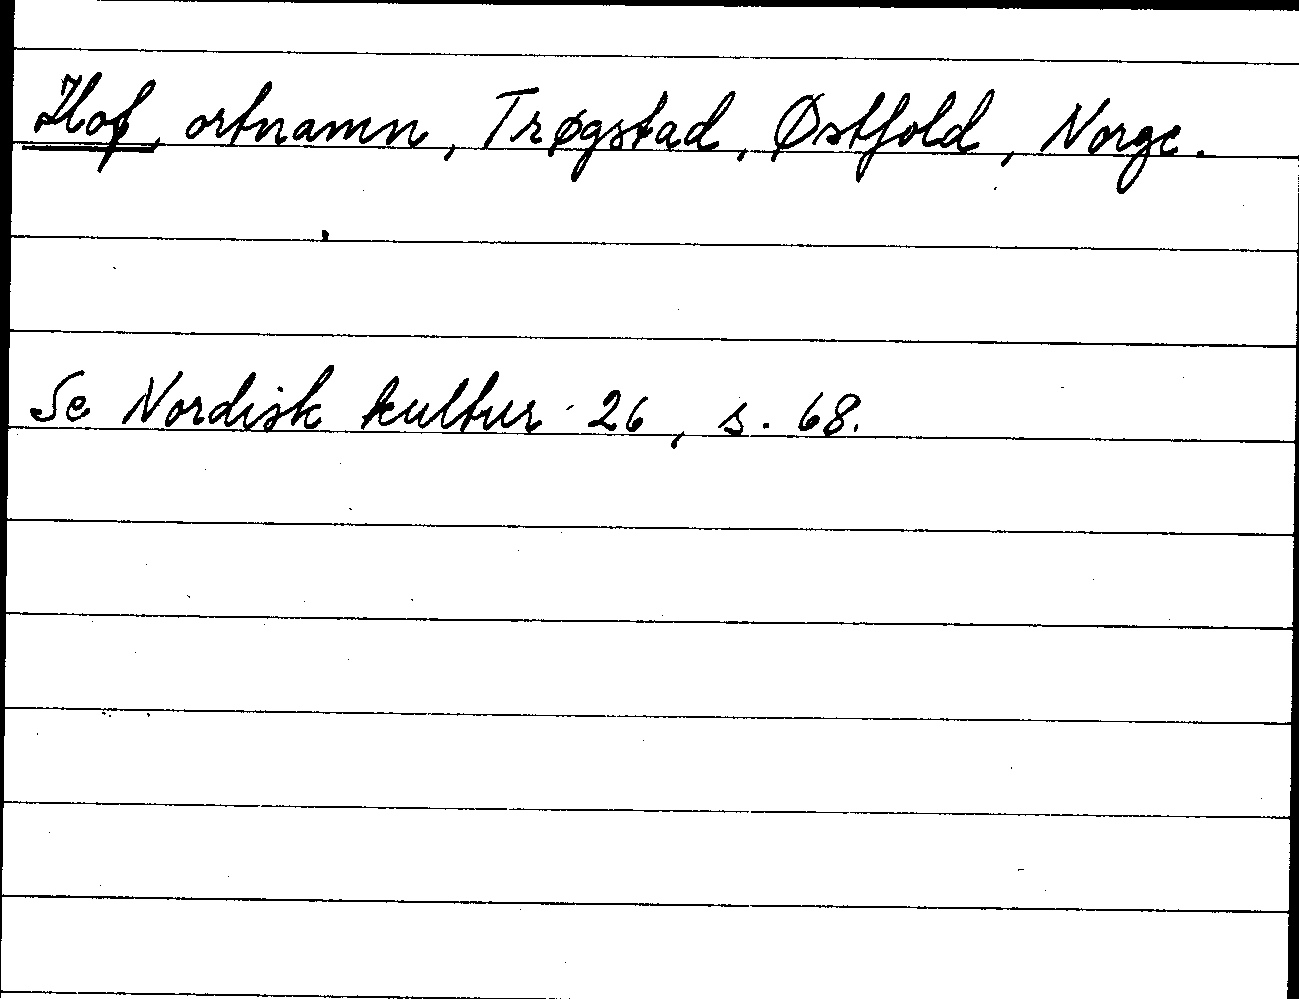 Hof, ortnamn, Trøgstad, Østfold, Norge.
Se Nordisk kultur 26, s. 68.